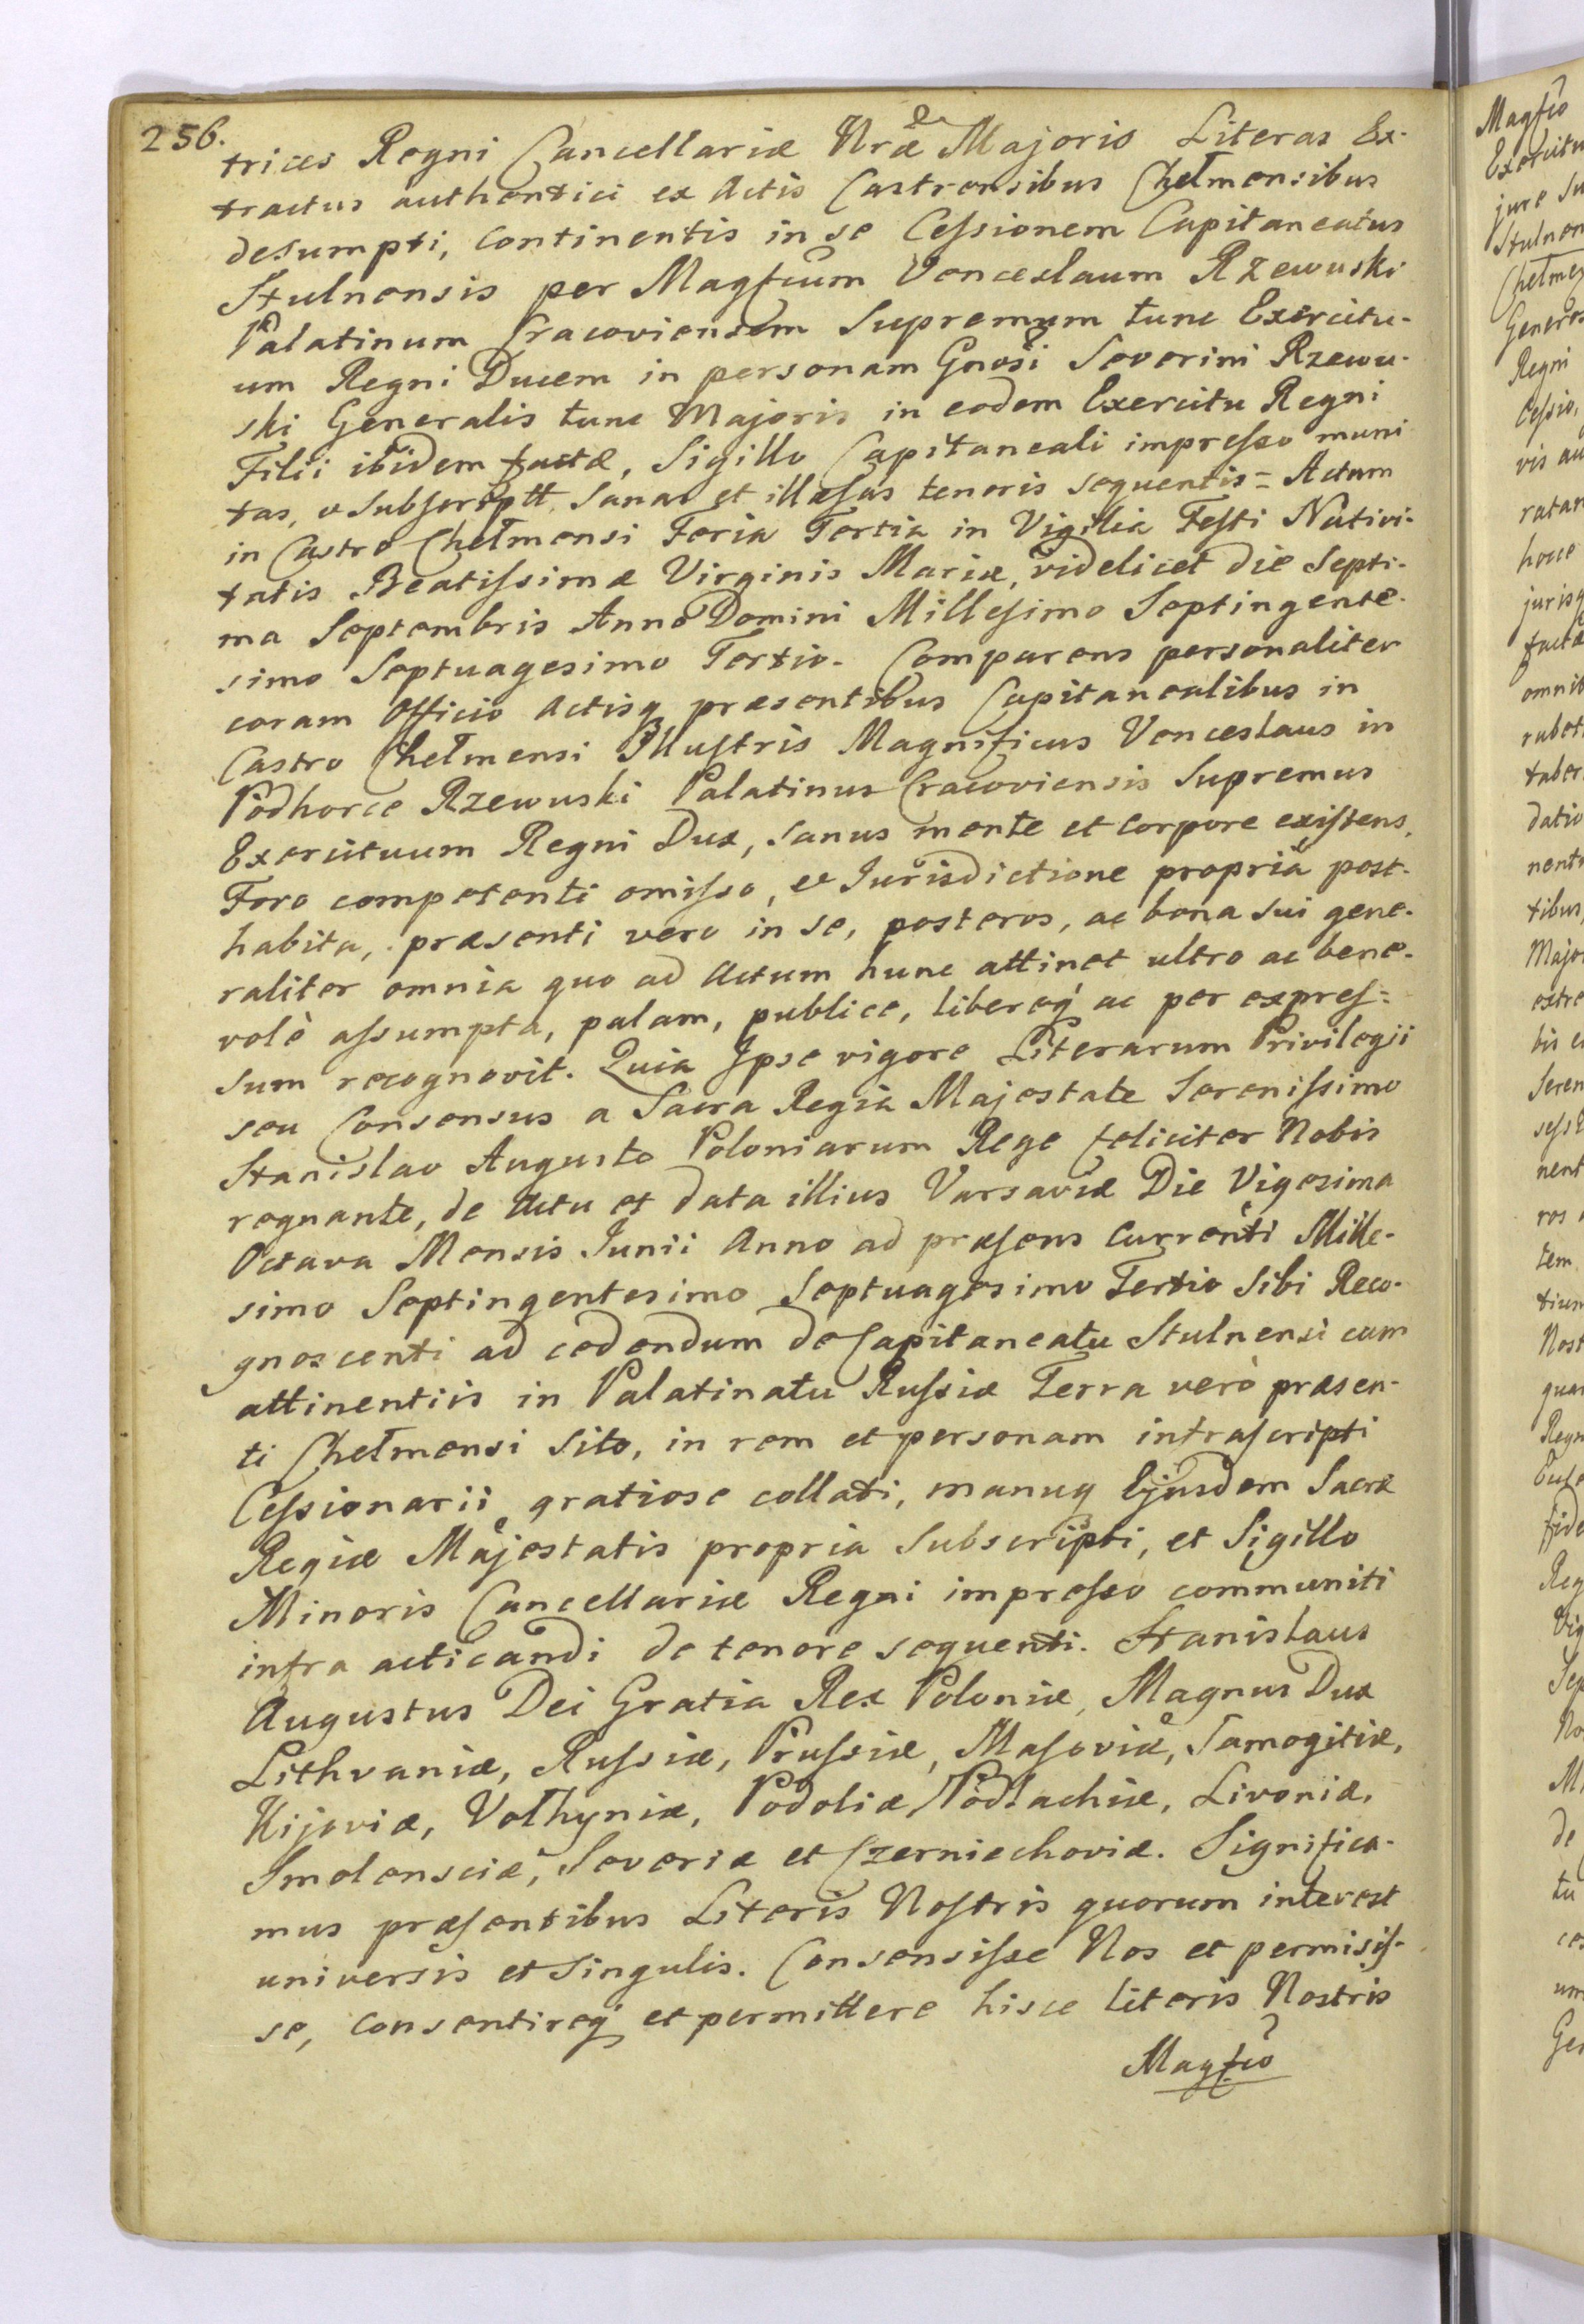 256.
trices Regni Cancellariæ Nræ Majoris Literas Ex-
tractus authentici ex Actis Castrensibus Chełmensibus
desumpti, continentis in se Ceſsionem Capitaneatus
Stulnensis per Magfcum Venceslaum Rzewuski
Palatinum Cracoviensem Supremum tunc Exercitu-
um Regni Ducem in personam Gnosi Severini Rzewu-
ski Generalis tunc Majoris in eodem Exercitu Regni
Filii ibidem factæ, Sigillo Capitaneali impreſso muni
tas, & Subscriptt. Sanas et illæſas tenoris sequentis = Actum
in Castro Chełmensi Feria Tertia in Vigilia Feſti Nativi-
tatis Beatiſsimæ Virginis Mariæ, videlicet die Septi-
ma Septembris Anno Domini Milleſimo Septingente-
simo Septuagesimo Tertio. Comparens personaliter
coram Officio Actisq præsentibus Capitanealibus in
Castro Chełmensi Illuſtris Magnificus Venceslaus in
Podhorce Rzewuski Palatinus Cracoviensis Supremus
Exercituum Regni Dux, sanus mente et corpore exiſtens,
Foro competenti omiſso, & Jurisdictione propria post-
habita, præsenti vero in se, posteros, ac bona sui gene-
raliter omnia quo ad Actum hunc attinet ultro ac bene-
volè aſsumpta, palam, publice, libereq́ ac per expreſ=
sum recognovit. Quia Ipse vigore Literarum Privilegii
seu Consensus a Sacra Regia Majestate Sereniſsimo
Stanislao Augusto Poloniarum Rege feliciter Nobis
regnante, de Actu et data illius Varsaviæ Die Vigesima
Octava Mensis Junii Anno ad præſens currenti Mille-
simo Septingentesimo Septuagesimo Tertio Sibi Reco-
gnoscenti ad cedendum de Capitaneatu Stulnensi cum
attinentiis in Palatinatu Ruſsiæ Terra verò præsen-
ti Chełmensi sito, in rem et personam infraſcripti
Ceſsionarii gratiose collati, manuq Ejusdem Sacræ
Regiæ Majestatis propria Subscripti, et Sigillo
Minoris Cancellariæ Regni impreſso communiti
infra acticandi de tenore sequenti. Stanislaus
Augustus Dei Gratia Rex Poloniæ, Magnus Dux
Lithvaniæ, Ruſsiæ, Pruſsiæ, Maſoviæ, Samogitiæ,
Kijoviæ, Volhyniæ, Podoliæ, Podlachiæ, Livoniæ,
Smolensciæ, Severiæ et Czerniechoviæ. Significa-
mus præſentibus Literis Noſtris quorum interest
universis et singulis. Consensiſse Nos et permisiſ-
se, consentireq́ et permittere hisce literis Nostris
Magfco